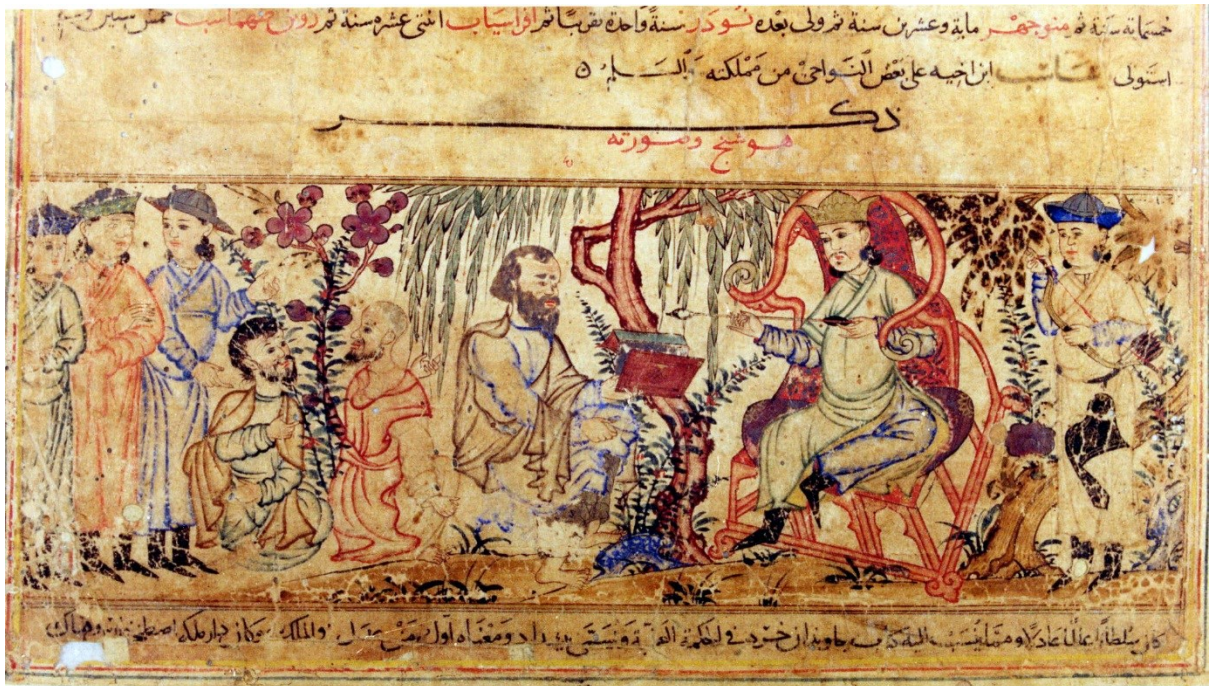 خمسماية سنة ثم منوجهر ماية وعشرين سنة ثم ولى بعده نوذر سنة واحدة تقريبا ثم افراسياب اثنتى عشره سنة ثم زو بن طهماسب خمس سنين
استولى ابن اخيه على بعض النواحى من مملكته والسلم
ذكر
هوشنج وصورته
كان سلطانا عالما عادلا ومما ينسب اليه كتاب جاويدان خرد فى الحكمة العملية ويسمى بيشداد ومعناه اول من عدل والملك وكان دار ملكه اصطخر